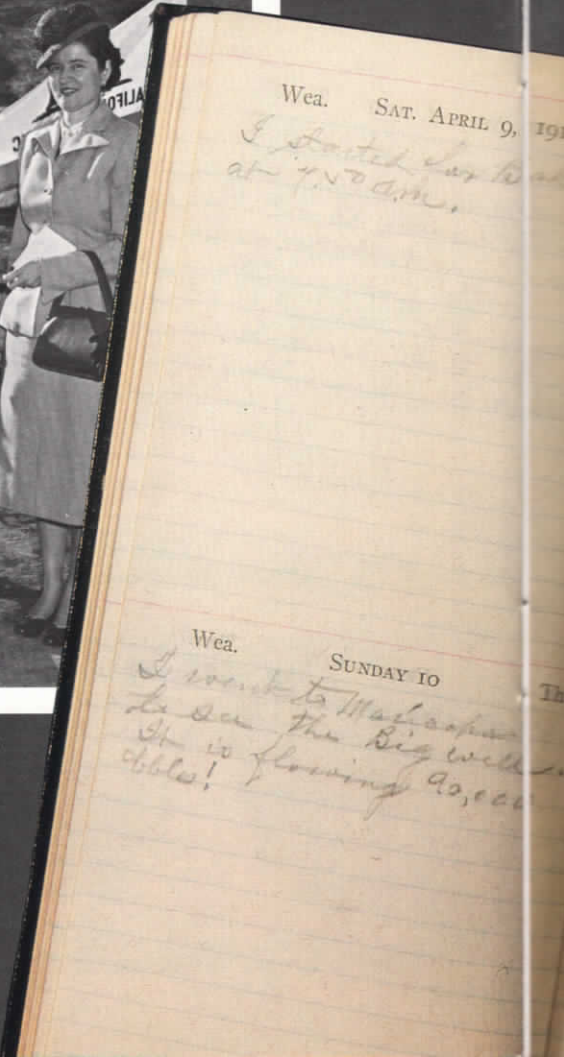 ALIFO
Wea. SAT. APRIL 9, 191
I started for
at 7.50 a.m.
Wea. SUNDAY 10 Th
I went to Maricopa
to see the Big well
It is flowing 90,000
bbls!